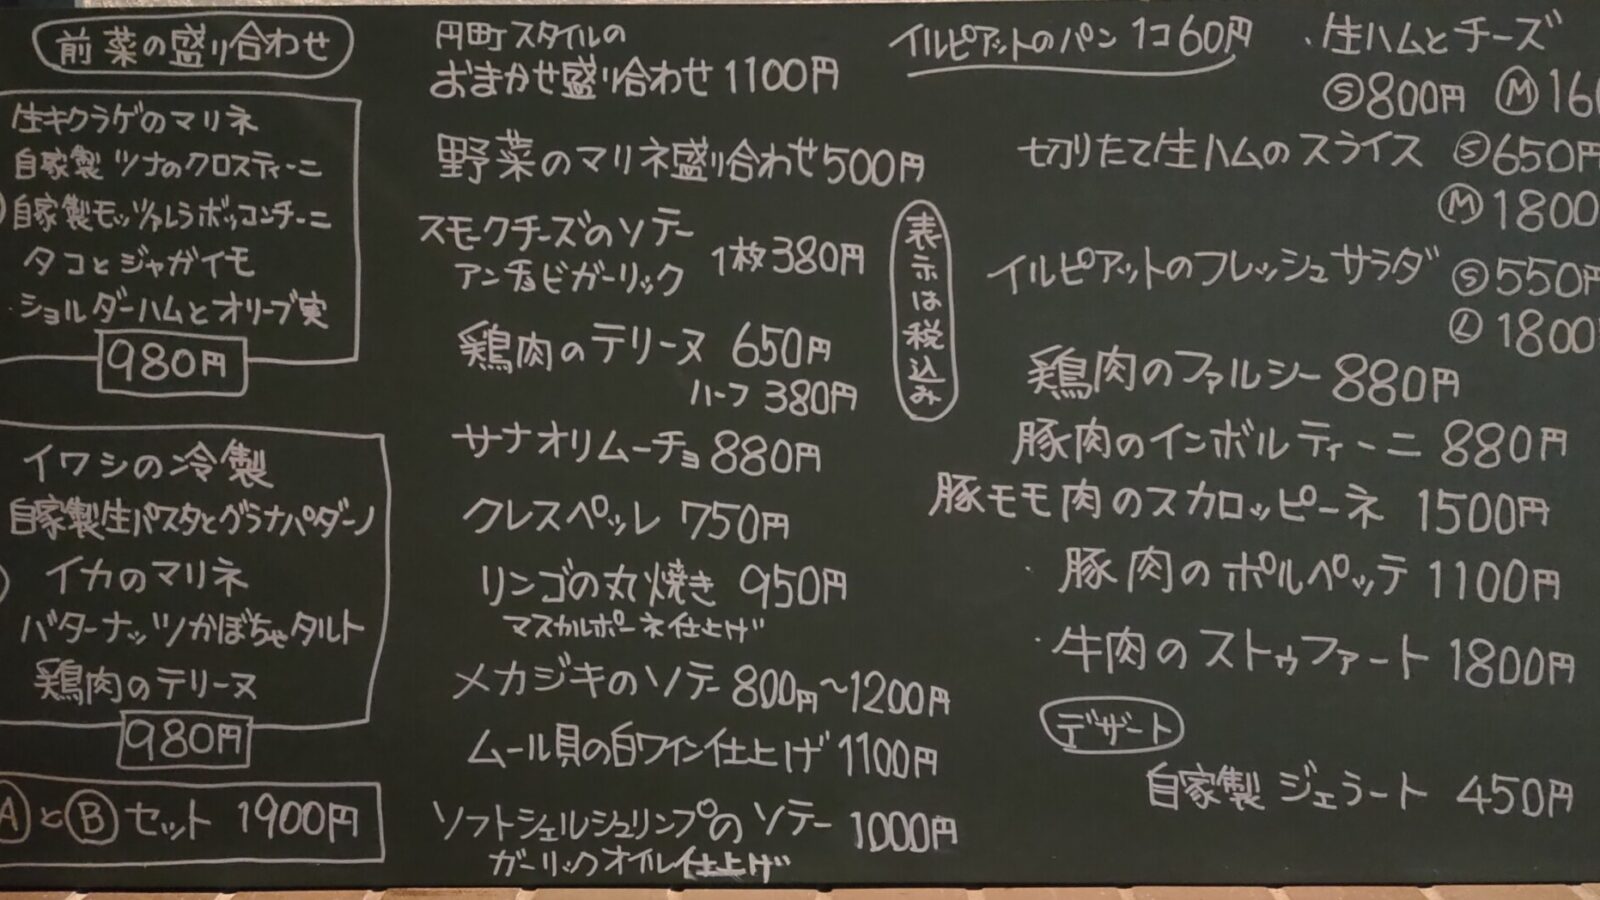 前菜の盛り合わせ
生キクラゲのマリネ
自家製ツナのクロスティーニ
自家製モッツァレラボッコンチーニ
タコとジャガイモ
ショルダーハムとオリーブ実
980円
イワシの冷製
自家製生パスタとグラナパダーノ
イカのマリネ
バターナッツかぼちゃタルト
鶏肉のテリーヌ
980円
AとBセット 1900円
円町スタイルの
おまかせ盛り合わせ 1100円
野菜のマリネ盛り合わせ 500円
スモークチーズのソテー
アンチョビガーリック 1枚 380円
鶏肉のテリーヌ 650円
ハーフ 380円
サナオリムーチョ 880円
クレスペッレ 750円
リンゴの丸焼き 950円
マスカルポーネ仕上げ
メカジキのソテー 800円〜1200円
ムール貝の白ワイン仕上げ 1100円
ソフトシェルシュリンプのソテー 1000円
ガーリックオイル仕上げ
表示は税込み
イルピアットのパン 1コ60円
・生ハムとチーズ
S 800円 M 160
切りたて生ハムのスライス S 650円
M 1800
イルピアットのフレッシュサラダ S 550円
L 1800
鶏肉のファルシー 880円
豚肉のインボルティーニ 880円
豚モモ肉のスカロッピーネ 1500円
・豚肉のポルペッテ 1100円
・牛肉のストゥファート 1800円
デザート
自家製ジェラート 450円